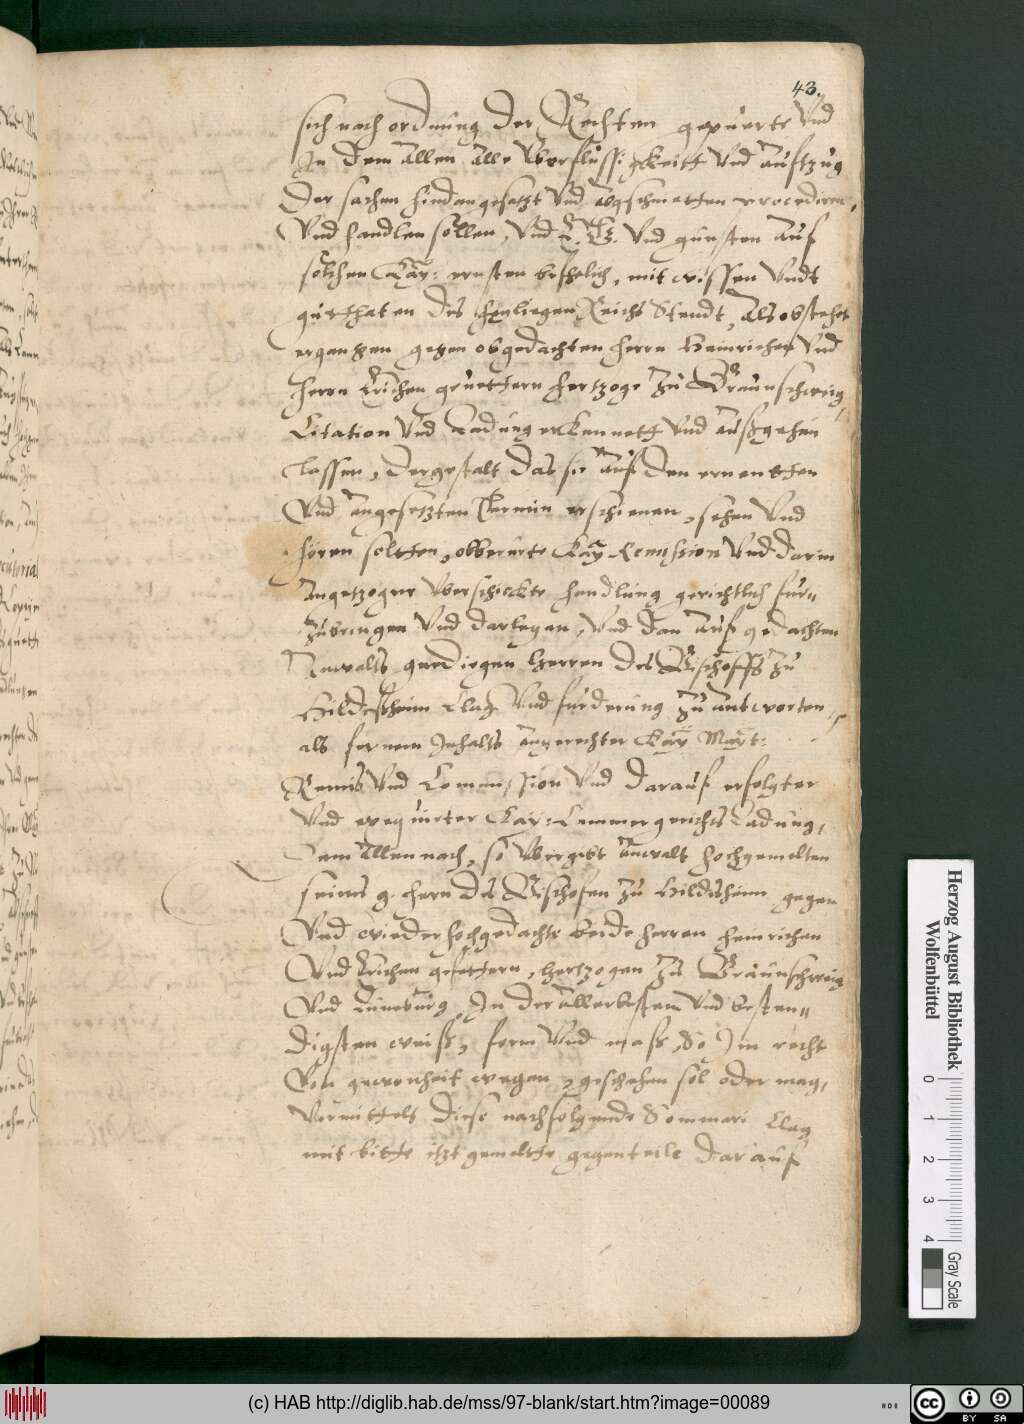 43.
sich nach ordnung der Rechten gepuerte Vnd
In dem allen alle Vberflussigkeitt Vnd auffzug
der sachen hindangesetzt Vnd abgschnetten procediren
Vnd handlen sollen, Vnd Vnd gunsten auf
solchen Kay: ernsten bephelich, mit wissen Vndt
gutthaten des heyligen Reichs Stendt, als obstehet
ergangen gegen obgedachten herrn Heinrichen Vnd
herrn Erichen geuettern hertzoge zu Braunschweig
Citation Vnd Ladung erkennett Vnd außgehen
lassen, dergestalt das sie auf den ernentten
Vnd angesetzten Termin erschienen, sehen Vnd
hören soltten, obberurte Kay Remission Vnd darin
angetzogne Vberschickte handlung gerichtlich fur=
zubringen Vnd darlegen, Vnd dan auf gedachten
Anwalts gnedigen Herren des Bischoffs zu
Hildeßheim Clag Vnd furderung zu antworten
als fernern Inhalts angerechter Kay Mayt:
Remis Vnd Commission Vnd darauf erfolgter
Vnd requirter Kay: Cammergerichts Ladung,
Dem allen nach, so Vbergibt anwalt hochgemelten
seines g. hern des Bischofen zu Hildeßheim gegen
Vnd wieder hochgedachte beide herren heinrichen
Vnd Erichen gefettern, Hertzogen zu Braunschweig
Vnd Luneburg, In der allerbesten Vnd besten=
digsten weiß, form Vnd maß, So Im recht
Von gewonheit wegen geschehen sol oder mag,
Vermittels diese nachfolgende Sommari Clag
mit bitte itzt gemeltte gegenteile darauf
Herzog August Bibliothek
Wolfenbüttel
0 1 2 3 4
Gray Scale
(c) HAB http://diglib.hab.de/mss/97-blank/start.htm?image=00089
cc BY SA